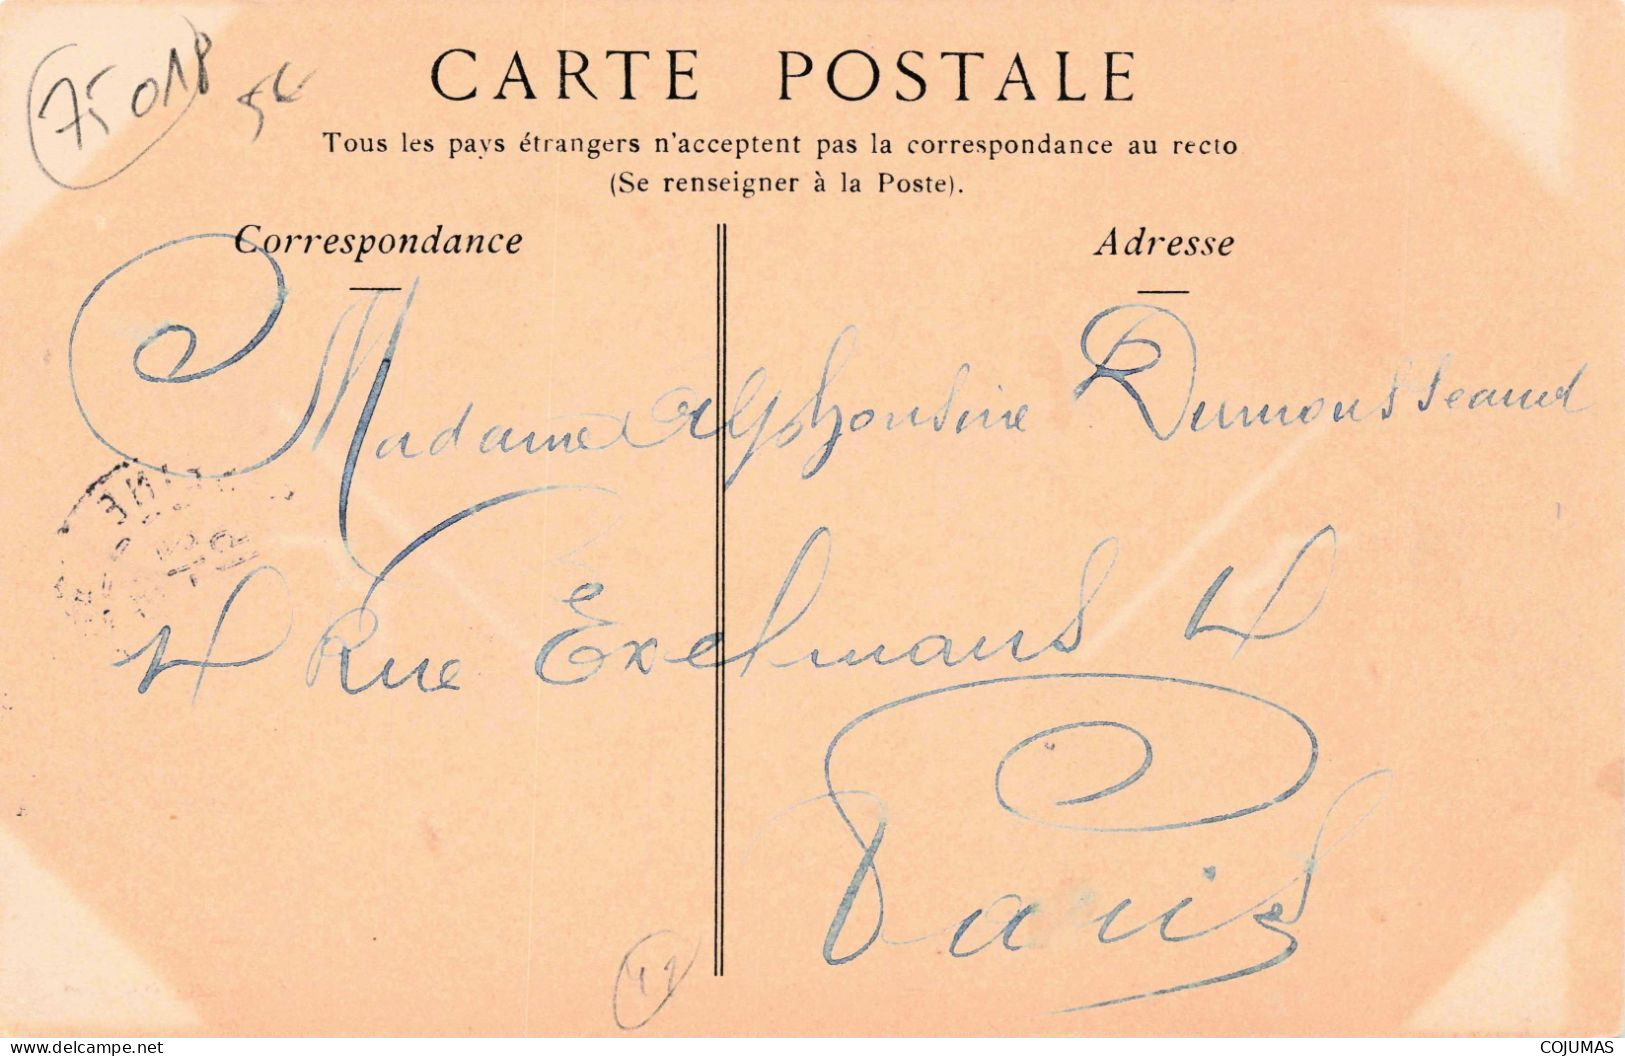 75018
5€
CARTE POSTALE
Tous les pays étrangers n'acceptent pas la correspondance au recto
(Se renseigner à la Poste).
Correspondance
Adresse
Madame Alphonsine Dumousseaud
4 Rue Exelmans 4
Paris
42
COJUMAS